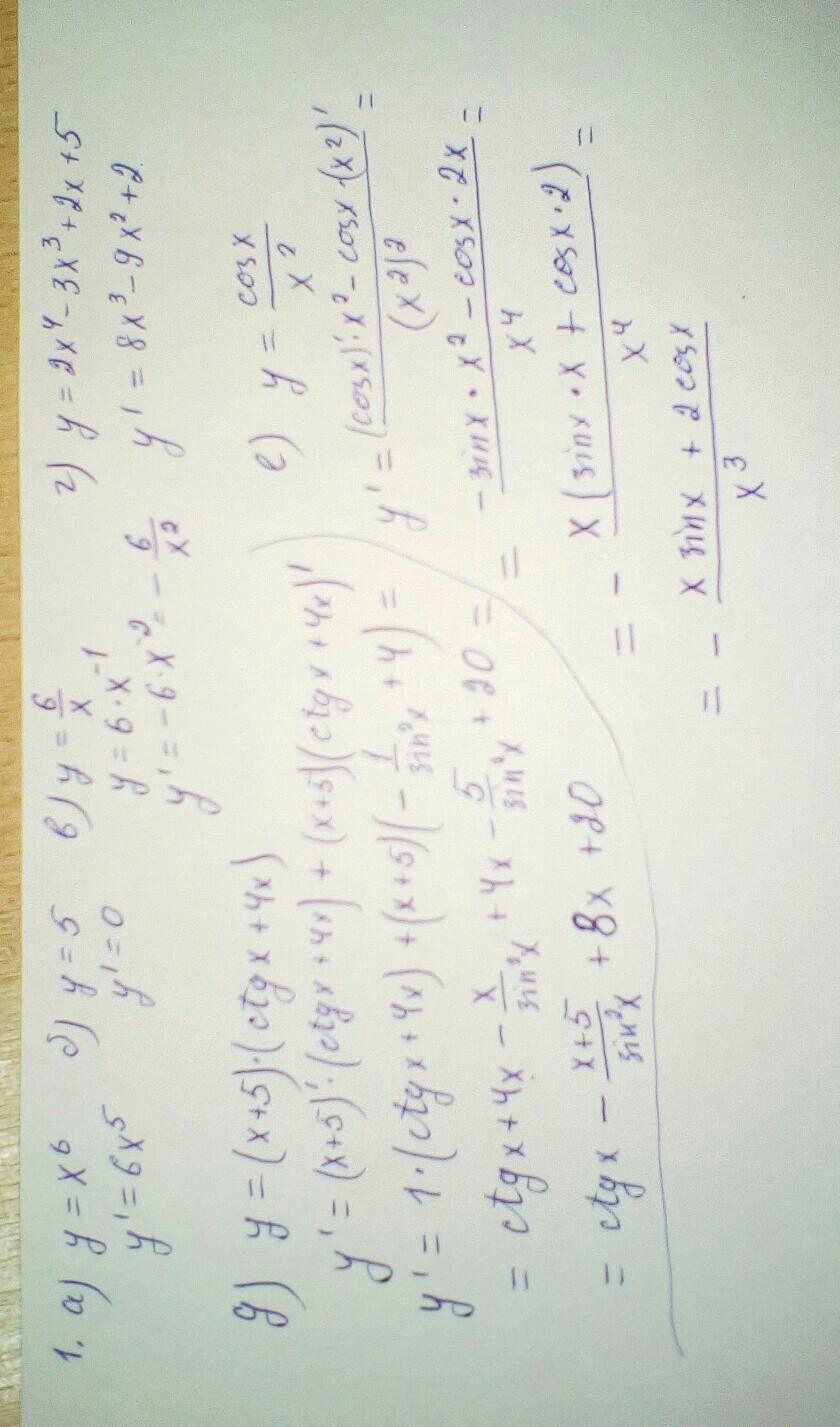 1. а) y = x⁶ б) y = 5 в) y = 6/x г) y = 2x⁴ - 3x³ + 2x + 5
y' = 6x⁵ y' = 0 y = 6·x⁻¹ y' = 8x³ - 9x² + 2
y' = -6·x⁻² = - 6/x²
д) y = (x+5)·(ctgx + 4x)
y' = (x+5)'·(ctgx + 4x) + (x+5)(ctgx + 4x)'
y' = 1·(ctgx + 4x) + (x+5)(- 1/sin²x + 4) =
= ctgx + 4x - x/sin²x + 4x - 5/sin²x + 20 =
= ctgx - (x+5)/sin²x + 8x + 20
е) y = cosx/x²
y' = ((cosx)'·x² - cosx·(x²)')/(x²)² =
= (-sinx·x² - cosx·2x)/x⁴ =
= - x(sinx·x + cosx·2)/x⁴ =
= - (x sinx + 2cosx)/x³